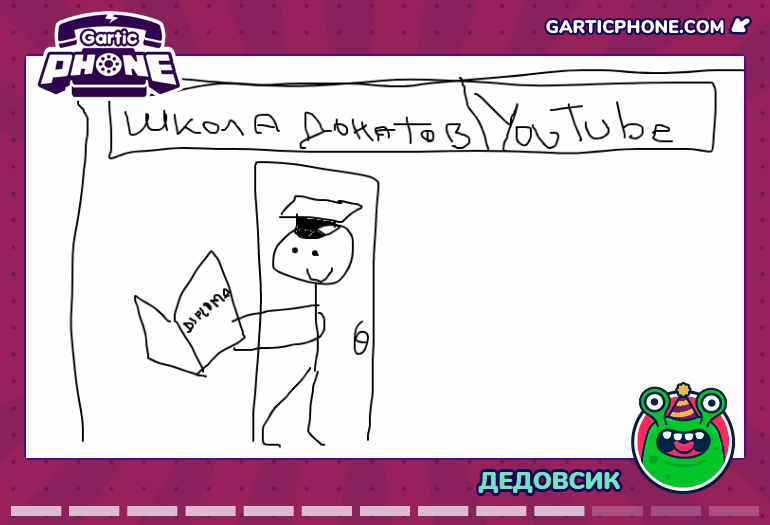 Gartic
PHONE
GARTICPHONE.COM
ШКОЛА ДОНАТОВ YouTube
DIPLOMA
ДЕДОВСИК